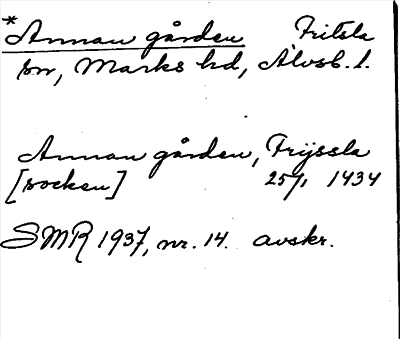 *Annan gården Fritsla
sn, Marks hd, Älvsb. l.
Annan gården, Frijssla
[socken] 25/1 1434
SMR 1937, nr. 14. avskr.